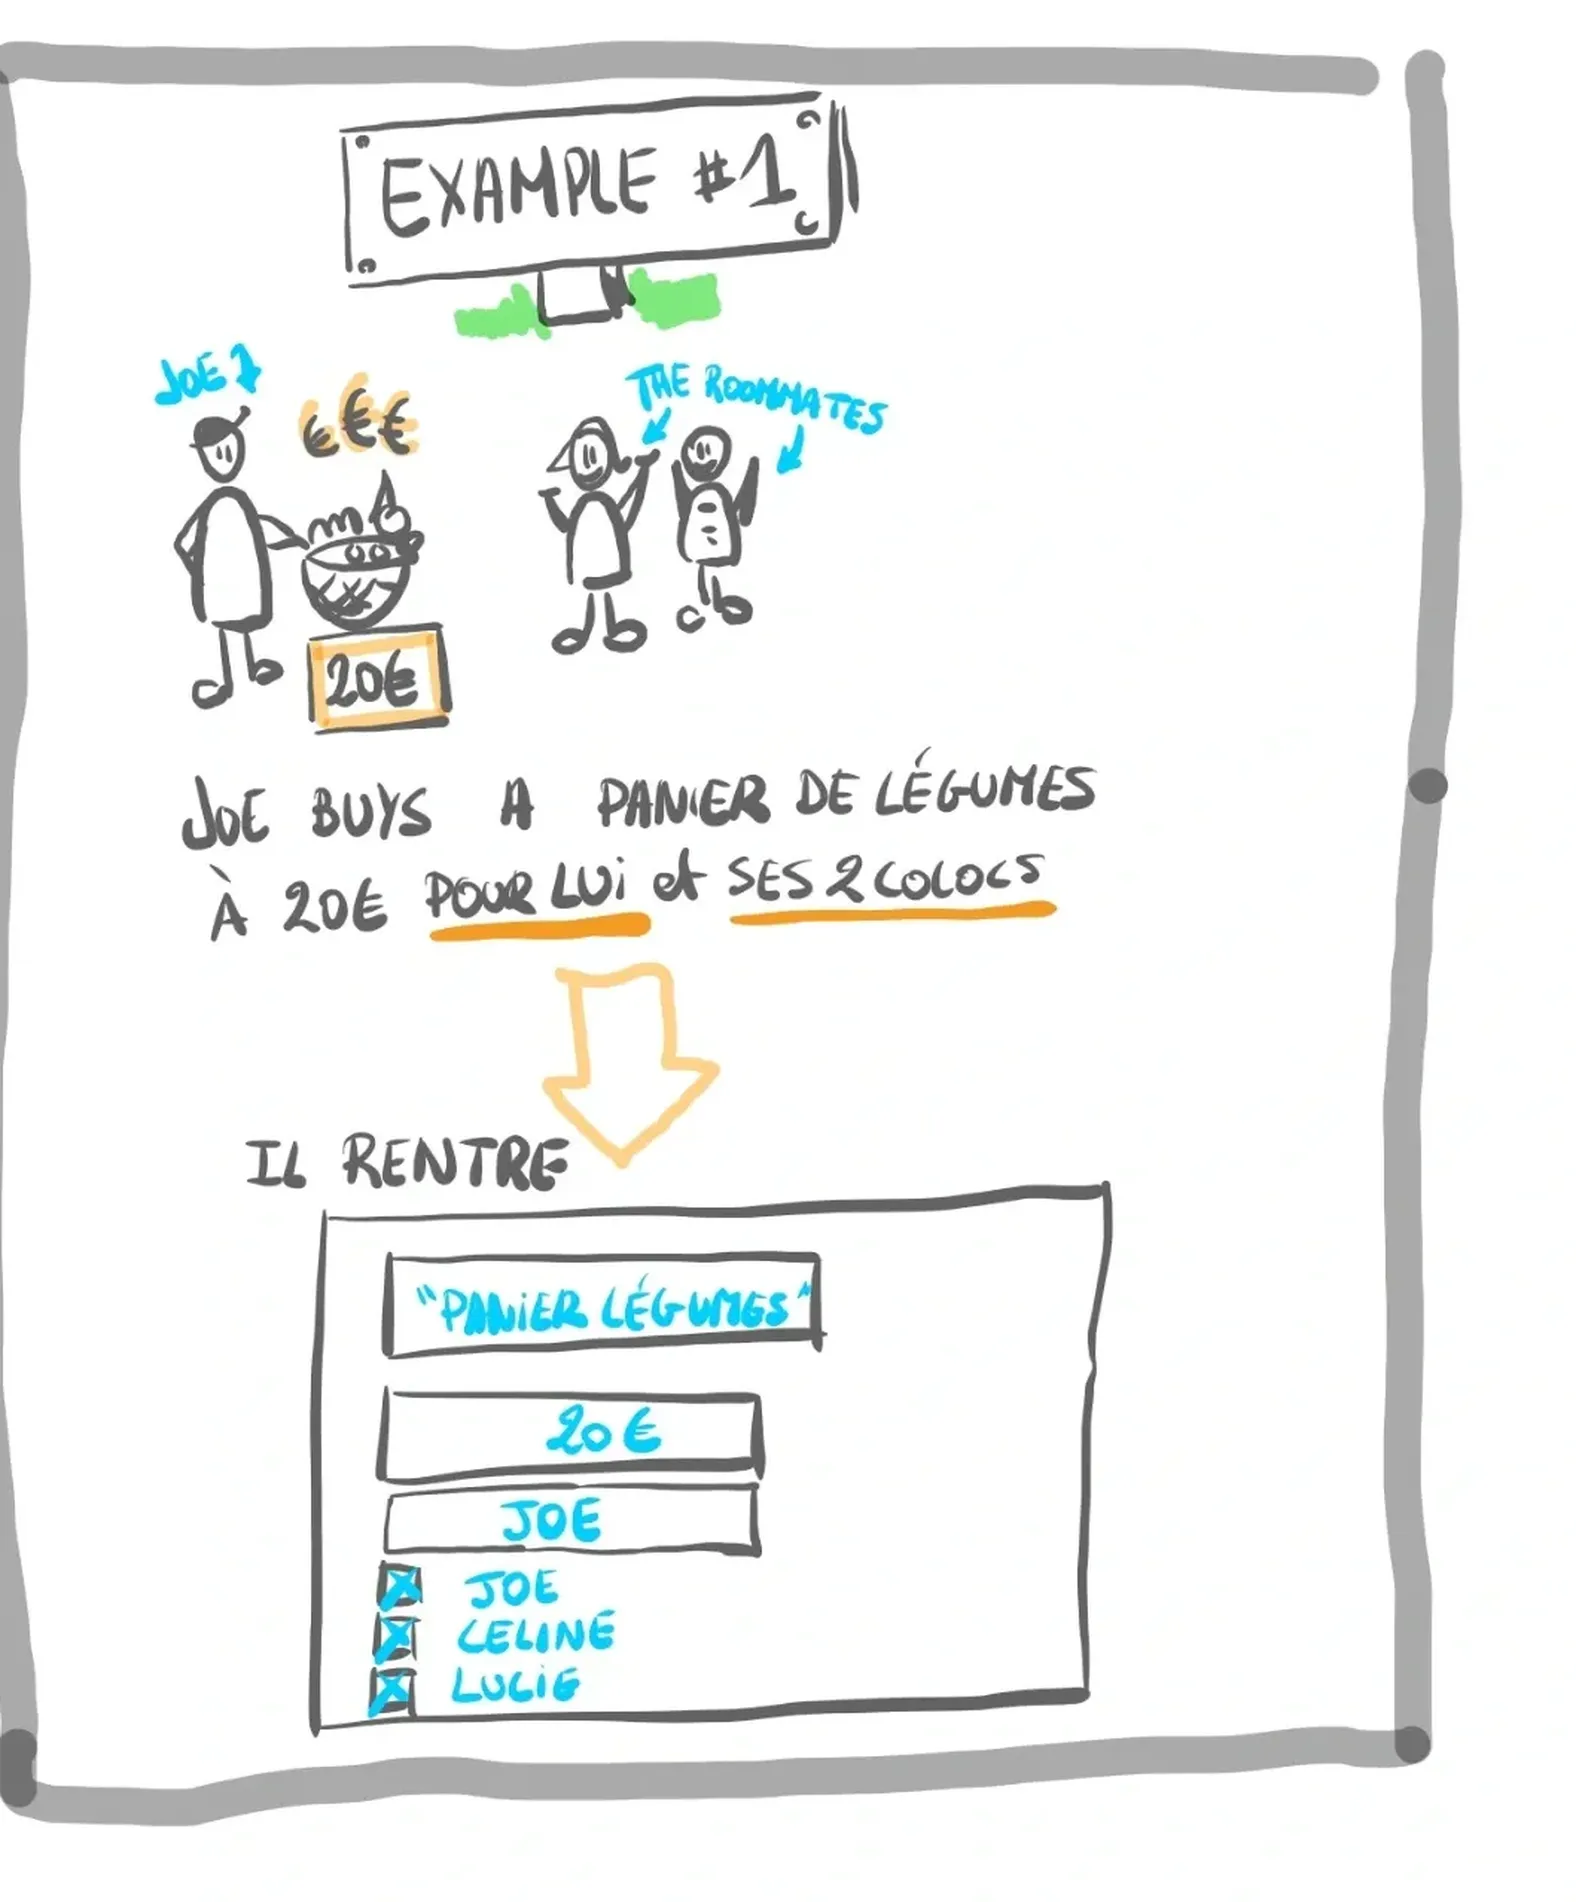 EXAMPLE #1
JOE
€€€
THE ROOMMATES
20€
JOE BUYS A PANIER DE LÉGUMES
À 20€ POUR LUI et SES 2 COLOCS
IL RENTRE
"PANIER LÉGUMES"
20€
JOE
JOE
CELINE
LUCIE